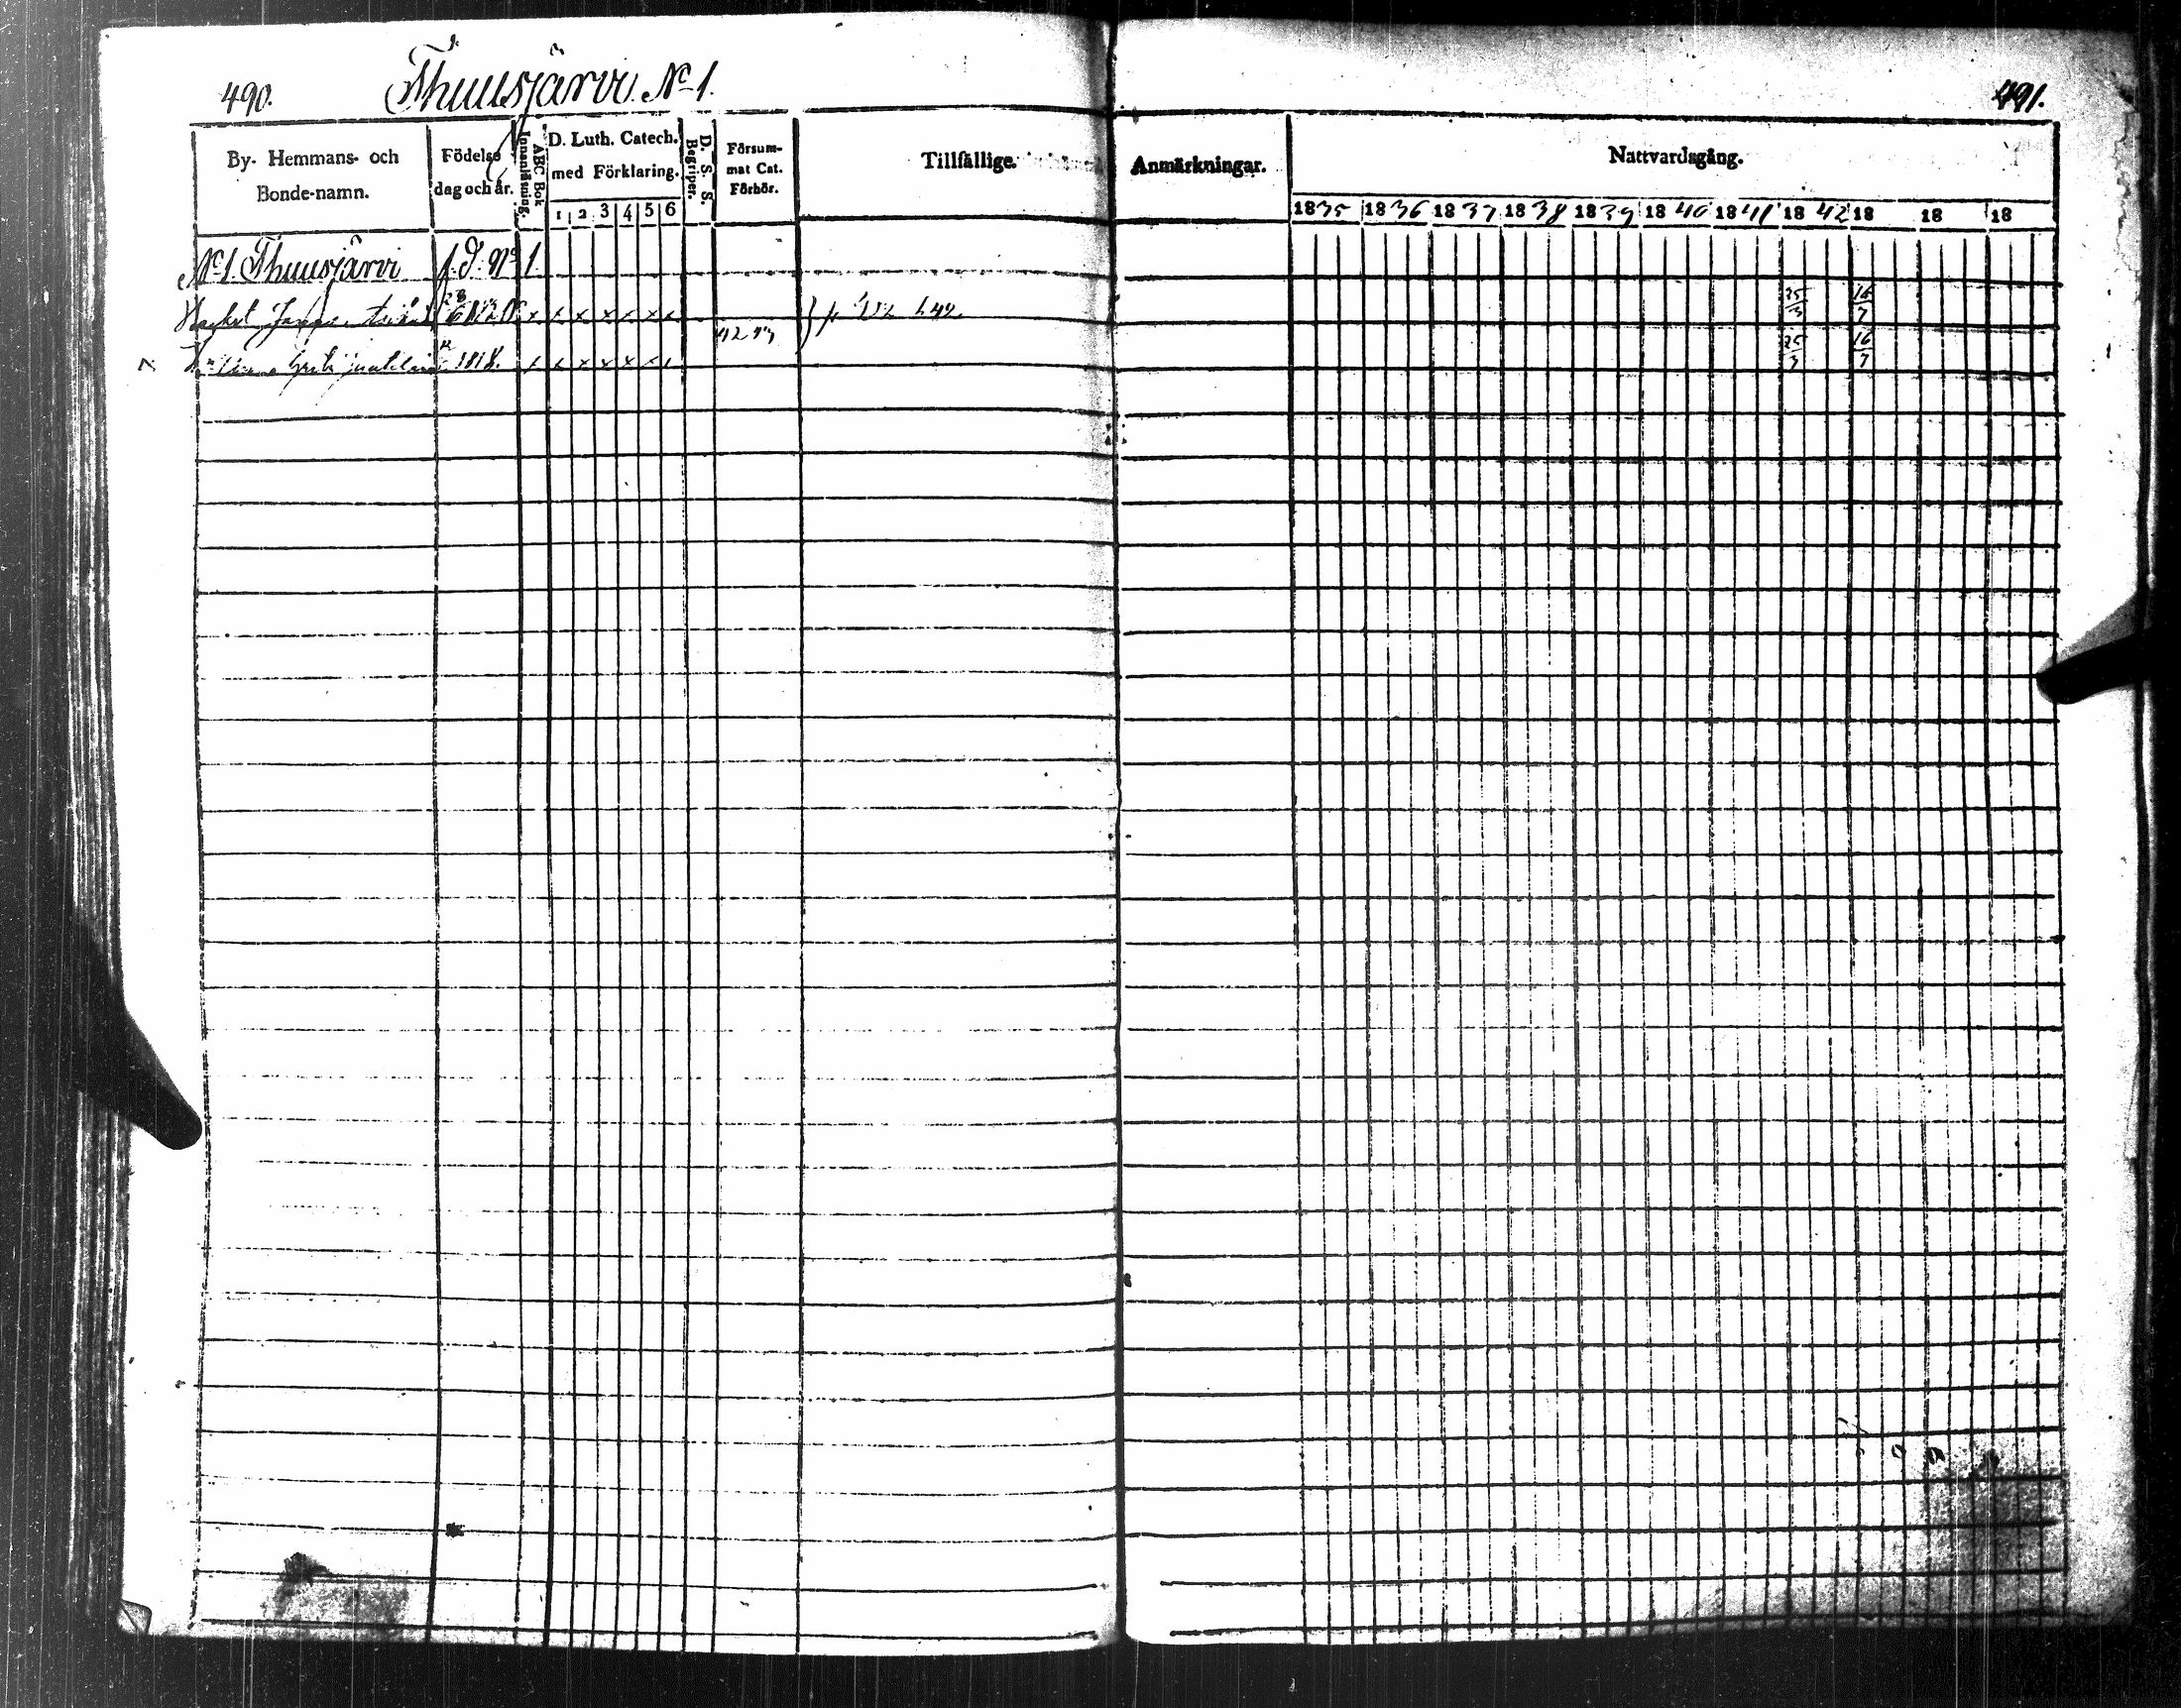 490.
Thuusjärvi № 1.
491.
By- Hemmans- och Bonde-namn.
Födelse dag och år.
ABC Bok Innanläsning.
D. Luth. Catech. med Förklaring.
1 2 3 4 5 6
D. S. S. Begriper.
Försummat Cat. Förhör.
Tillfällige
Anmärkningar.
Nattvardsgång.
1835 1836 1837 1838 1839 1840 1841 1842 18 18 18
№ 1. Thuusjärvi
x x x x x x x
25/3 16/7
1818. x x x x x x x
25/3 16/7